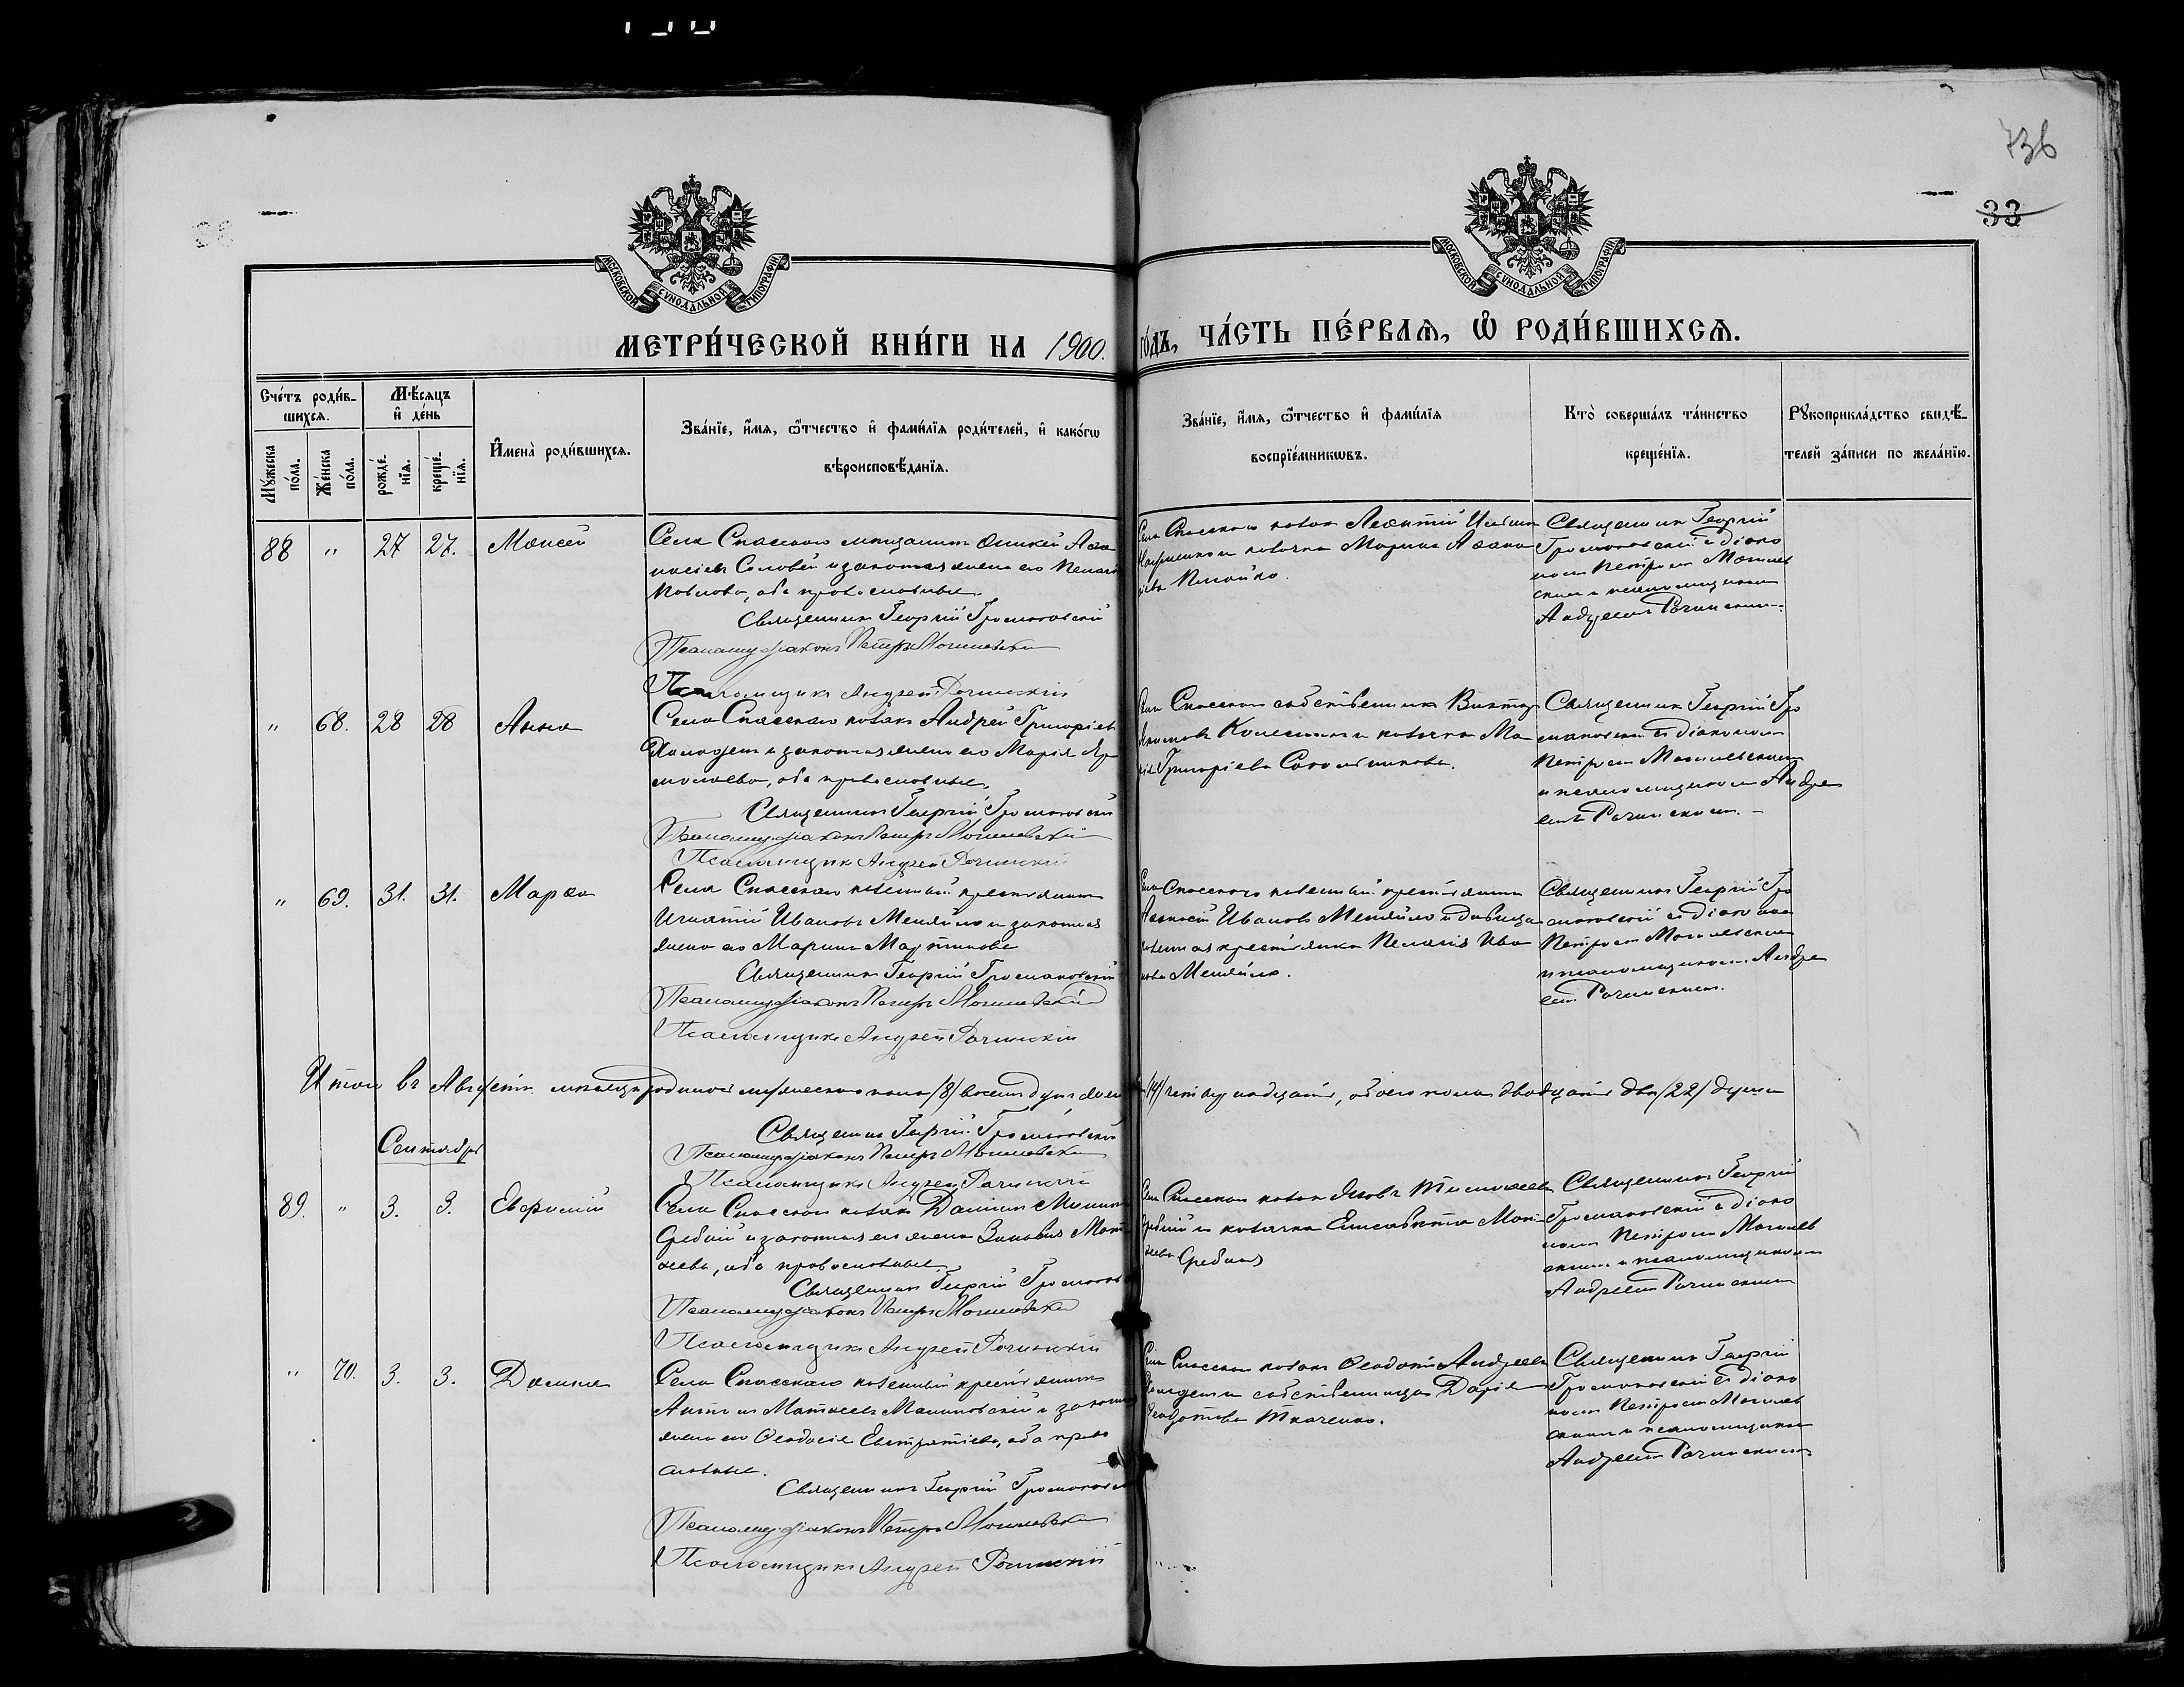 736
33
МОСКОВСКОЙ СѴНОДАЛЬНОЙ ТИПОГРАФІИ
МОСКОВСКОЙ СѴНОДАЛЬНОЙ ТИПОГРАФІИ
МЕТРИ́ЧЕСКОЙ КНИ́ГИ НА 1900. ГО́ДЪ, ЧА́СТЬ ПЕ́РВАѦ, Ѡ РОДИ́ВШИХСѦ.
Сче́тъ роди́в-
шихсѧ.
Му́жеска по́ла.
Же́нска по́ла.
Мѣ́сяцъ
и де́нь
рожде́-
нїѧ.
креще́-
нїѧ.
Имена̀ роди́вшихсѧ.
Зва́нїе, и́мѧ, ѿтчество и фами́лїѧ роди́телей, и како́гѡ
вѣроисповѣ́данїѧ.
Зва́нїе, и́мѧ, ѿтчество и фами́лїѧ
воспрїе́мникѡвъ.
Кто̀ соверша́лъ та́инство
креще́нїѧ.
Рукоприкла́дство свидѣ́-
телей за́писи по жела́нїю.
88 " 27 27. Моисей
Села Спасского мещанинъ Аѳа
насіевъ Соловей и законная жена его Пелагія
Павлова, оба православные
Священникъ Георгій Громаковскій
Псаломщ. діаконъ Петръ Могилевскій
Псаломщикъ Андрей Рачинскій
Села Спасского козакъ Леонтій
и козачка Марина Аѳана
сіева
Священникъ Георгій
Громаковскій съ діако
номъ Петромъ Могилев
скимъ и псаломщикомъ
Андреемъ Рачинскимъ.
" 68. 28 28 Анна
Села Спасского козакъ Андрей Григоріевъ
и законная жена его Марія Яр
молаева, оба православные,
Священникъ Георгій Громаковскій
Псаломщ. діаконъ Петръ Могилевскій
Псаломщикъ Андрей Рачинскій
Села Спасского собственникъ Викторъ
и козачка Ма
рія Григоріева
Священникъ Георгій Гро
маковскій съ діакономъ
Петромъ Могилевскимъ
и псаломщикомъ Андре
емъ Рачинскимъ. -
" 69. 31. 31. Марѳа
Села Спасского казенный крестьянинъ
Игнатій Ивановъ Меняйло и законная
жена его Марина Мартинова
Священникъ Георгій Громаковскій
Псаломщ. діаконъ Петръ Могилевскій
Псаломщикъ Андрей Рачинскій
Села Спасского казенный крестьянинъ
Ивановъ Меняйло и дѣвица
казенная крестьянка Пелагія Ива
нова Меняйло.
Священникъ Георгій Гро
маковскій съ діакономъ
Петромъ Могилевскимъ
и псаломщикомъ Андре
емъ Рачинскимъ.
Итого въ Августѣ мѣсяцѣ родилось мужескаго пола /8/ восемь душъ, женска /14/ четырнадцать, обоего пола двадцать два /22/ души
Священникъ Георгій Громаковскій
Псаломщ. діаконъ Петръ Могилевскій
Псаломщикъ Андрей Рачинскій
Сентябрь
89. " 3. 3. Евфимій
Села Спасского козакъ Даніилъ
Сребній и законная его жена Зиновія Мат
ѳеева, оба православные.
Священникъ Георгій Громаков
Псаломщ. діаконъ Петръ Могилевскій
Псаломщикъ Андрей Рачинскій
Села Спасского козакъ Яковъ Тимоѳеевъ
Сребній и козачка Елисавета Мат
ѳеева Сребная
Священникъ Георгій
Громаковскій съ діако
номъ Петромъ Могилев
скимъ и псаломщикомъ
Андреемъ Рачинскимъ
" 70. 3. 3. Домна
Села Спасского казенный крестьянинъ
Антонъ Матѳеевъ Малиновскій и законная
жена его Ѳеодосія Евстратіева, оба право
славные.
Священникъ Георгій Громаковскій
Псаломщ. діаконъ Петръ Могилевскій
Псаломщикъ Андрей Рачинскій
Села Спасского козакъ Ѳеодотъ Андреевъ
и собственница Дарія
Ѳеодотова Ткаченко.
Священникъ Георгій
Громаковскій съ діако
номъ Петромъ Могилев
скимъ и псаломщикомъ
Андреемъ Рачинскимъ